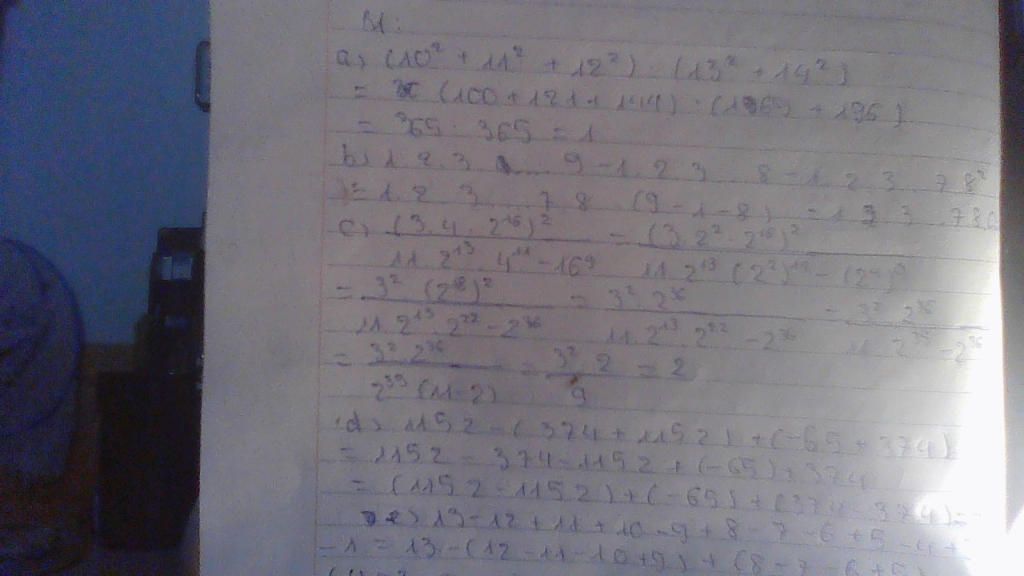 B1:
a) (10² + 11² + 12²) : (13² + 14²)
= (100 + 121 + 144) : (169 + 196)
= 365 : 365 = 1
b) 1.2.3 ... 9 - 1.2.3 .. 8 - 1.2.3 .. 7 8²
= 1.2.3 ... 7.8 . (9 - 1 - 8) = 1 2 3 .. 7 8
c) (3.4.2¹⁶)² / 11.2¹³.4¹¹ - 16⁹ = (3.2².2¹⁶)² / 11.2¹³.(2²)¹¹ - (2⁴)⁹
= 3².(2¹⁸)² / 11.2¹³.2²² - 2³⁶ = 3².2³⁶ / 11.2¹³.2²² - 2³⁶ = 3².2³⁶ / 11.2³⁵ - 2³⁶
= 3².2³⁶ / 2³⁵(11-2) = 3².2 / 9 = 2
d) 1152 - (374 + 1152) + (-65 + 374)
= 1152 - 374 - 1152 + (-65) + 374
= (1152 - 1152) + (-65) + (374 - 374) =
e) 13 - 12 + 11 + 10 - 9 + 8 - 7 - 6 + 5 - 4 +
- 1 = 13 - (12 - 11 - 10 + 9) + (8 - 7 - 6 + 5)